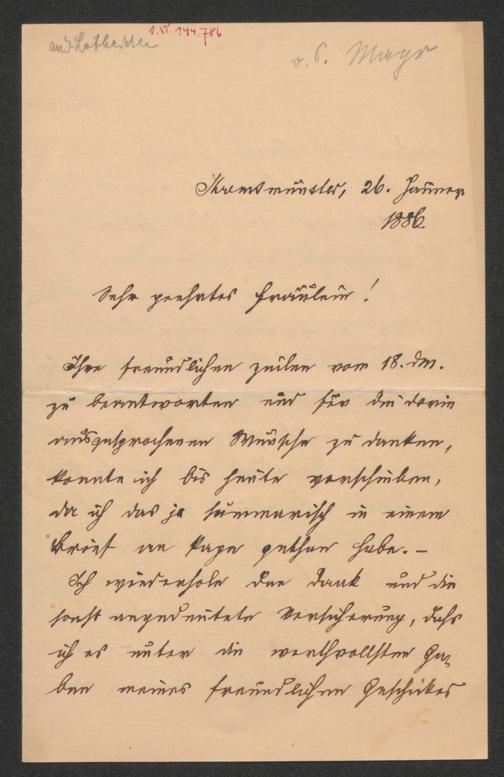 I.N. 144.786
v. P. Mayr
Kremsmünster, 26. Jänner
1886.
Sehr geehrtes Fräulein!
Ihre freundlichen Zeilen vom 18. dM.
zu beantworten und für die darin
ausgesprochenen Wünsche zu danken,
konnte ich bis heute verschieben,
da ich das ja summarisch in einem
Brief an gethan habe. –
Ich wiederhole den Dank und die
sonst angedeutete Versicherung, daß
ich es unter die werthvollsten Ga-
ben meines freundlichen Geschickes